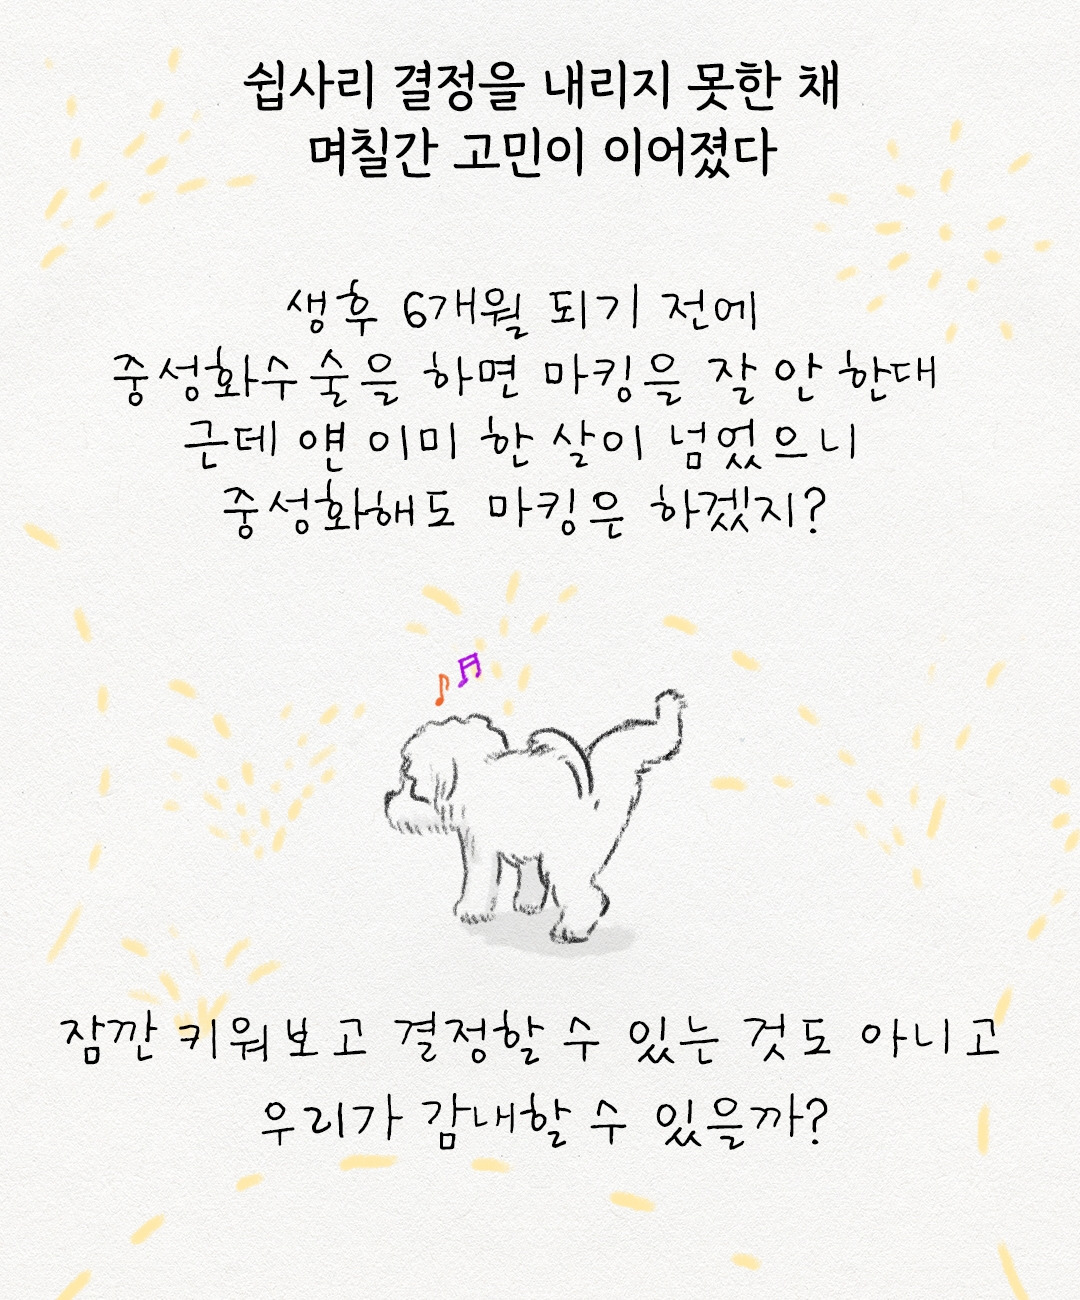 쉽사리 결정을 내리지 못한 채
며칠간 고민이 이어졌다
생후 6개월 되기 전에
중성화수술을 하면 마킹을 잘 안 한대
근데 얜 이미 한 살이 넘었으니
중성화해도 마킹은 하겠지?
잠깐 키워보고 결정할 수 있는 것도 아니고
우리가 감내할 수 있을까?